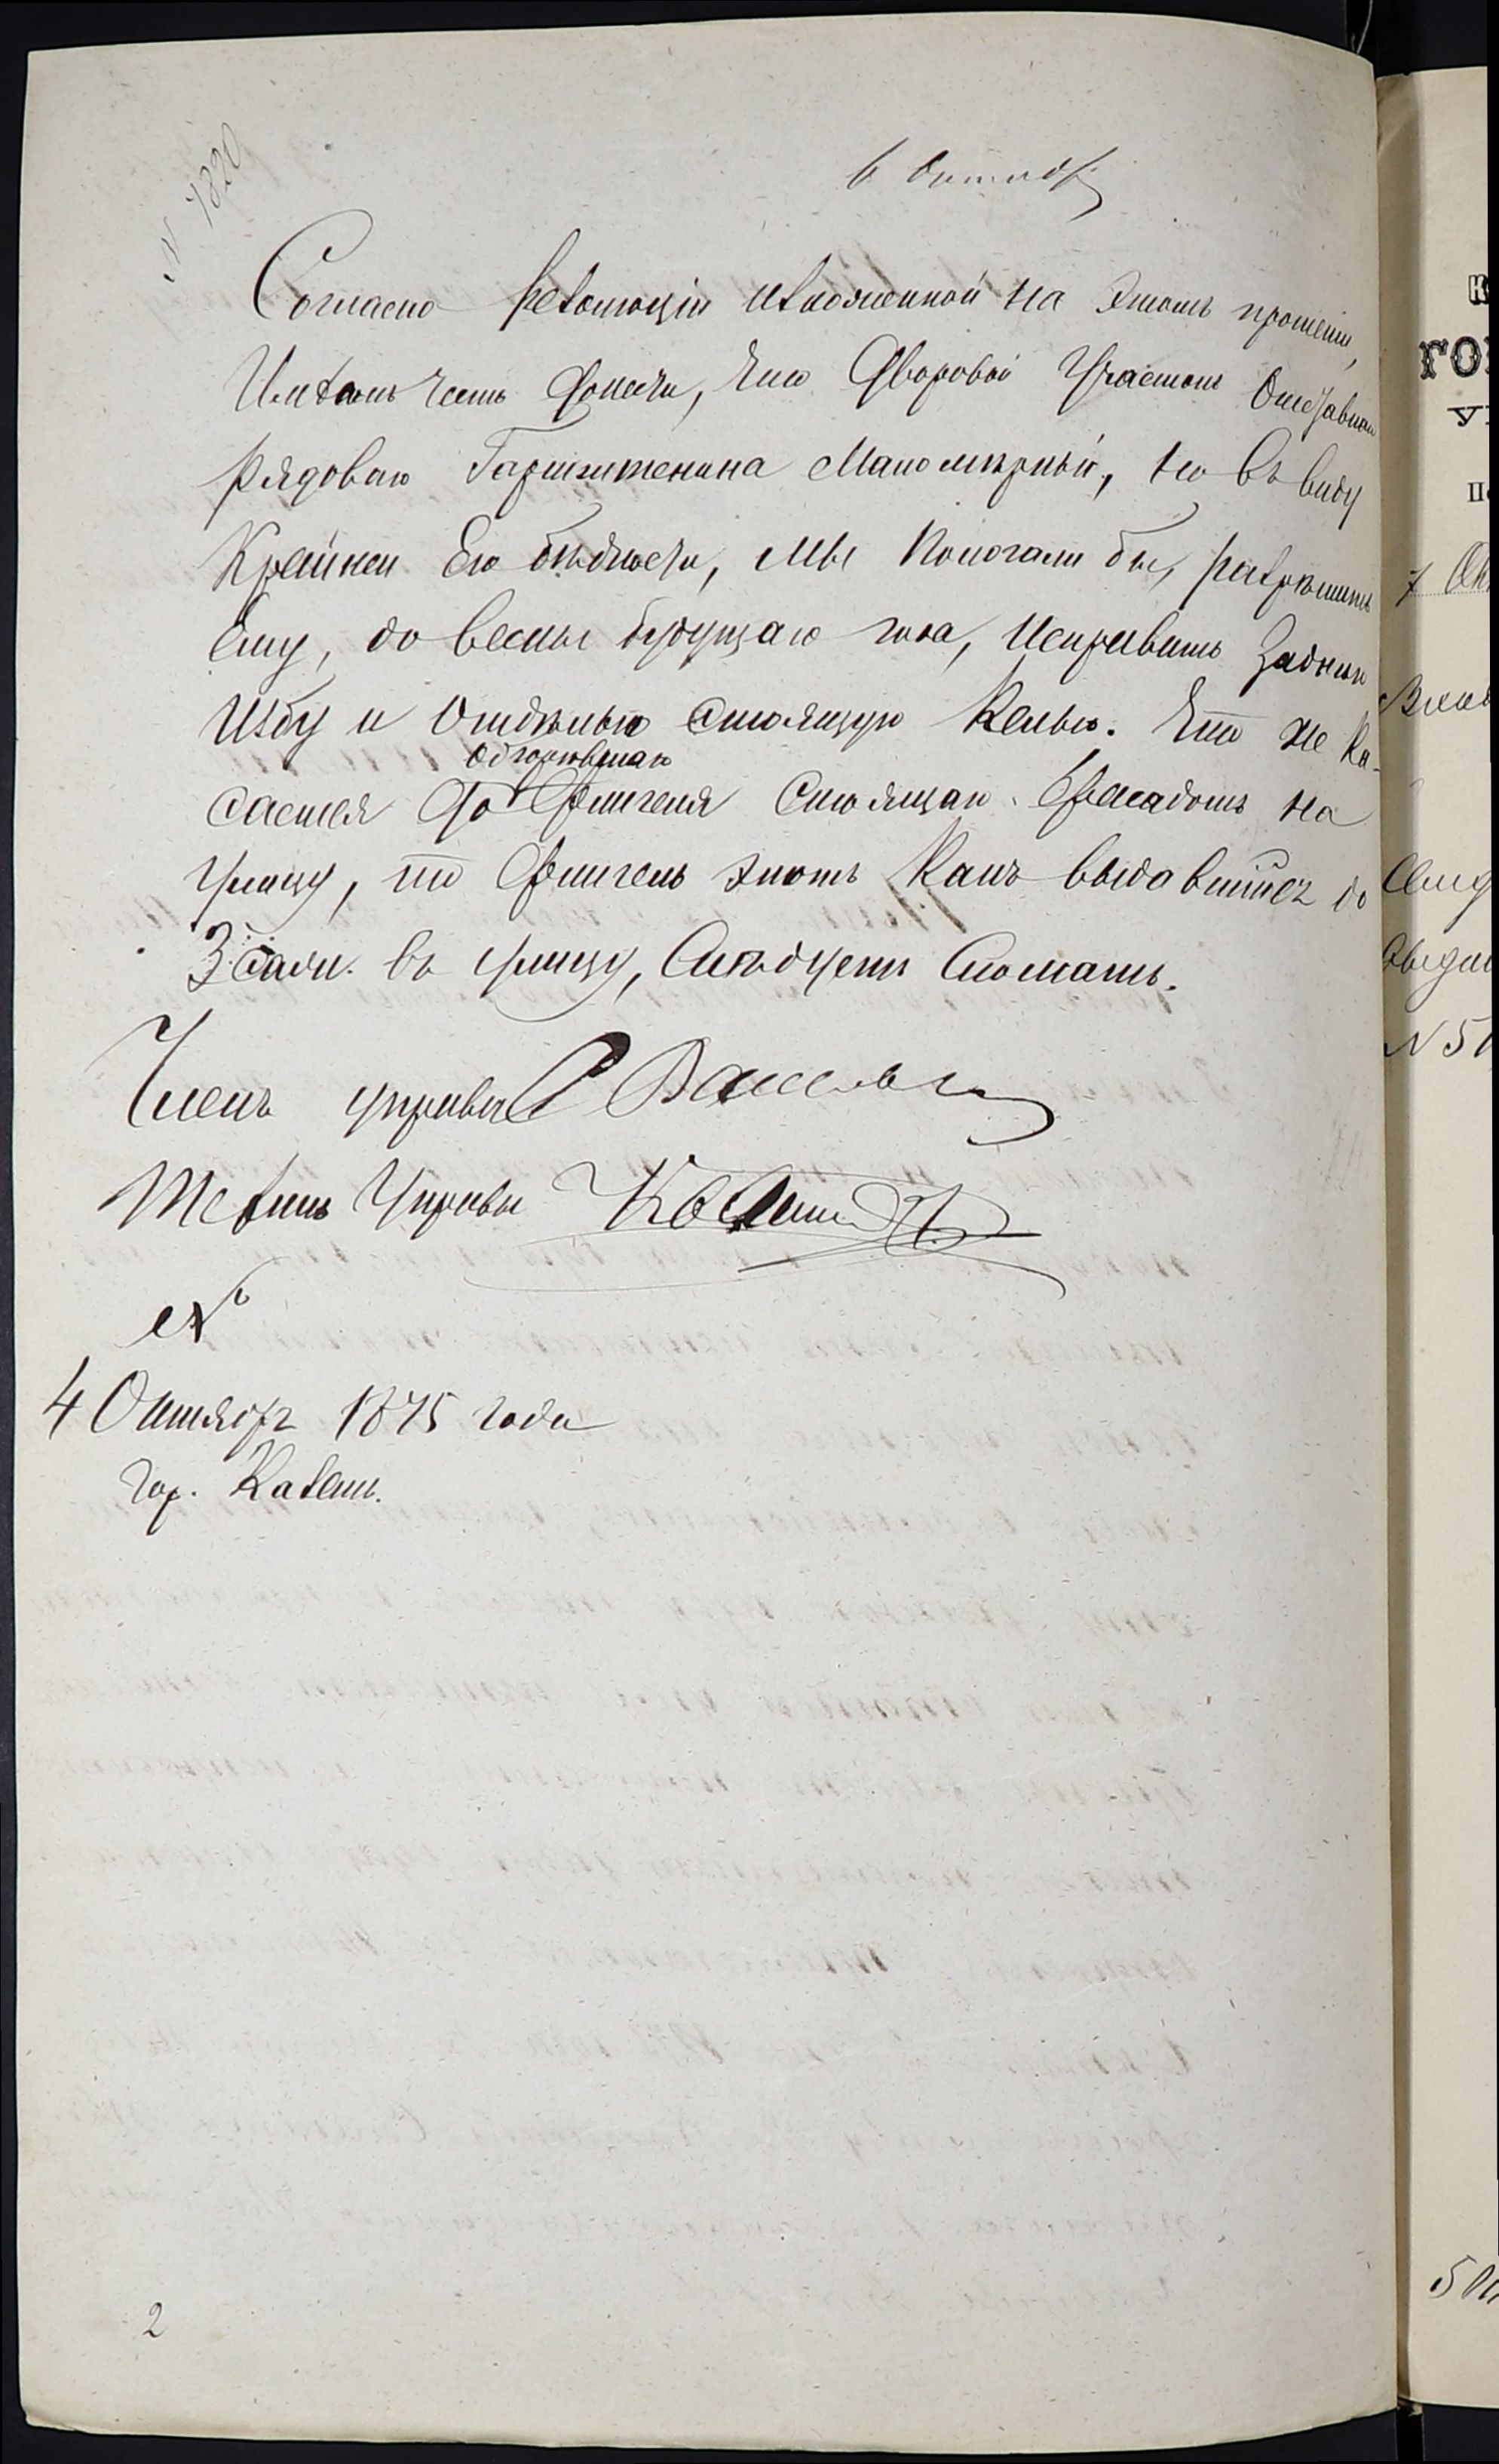 N 4220
6 Октября
Согласно резолюціи изложенной на этомъ прошеніи,
Имѣемъ честь донести, что Дворовой Участокъ Отставнаго
рядоваго маломѣрный, но въ виду
Крайней Его бѣдности, Мы Пологали бы, разрѣшить
Ему, до весны будущаго года, Исправить Заднюю
Избу и Отдѣльно стоящую Келью. Что же ка-
обгорѣвшаго
сается до Флигеля Стоящаго Фасадомъ на
улицу, то Флигель этотъ Какъ выдавшійся до
3 саж. въ улицу, Слѣдуетъ Сломать.
Членъ управы
Техникъ Управы
N
4 Октября 1875 года
Гор. Казань.
2